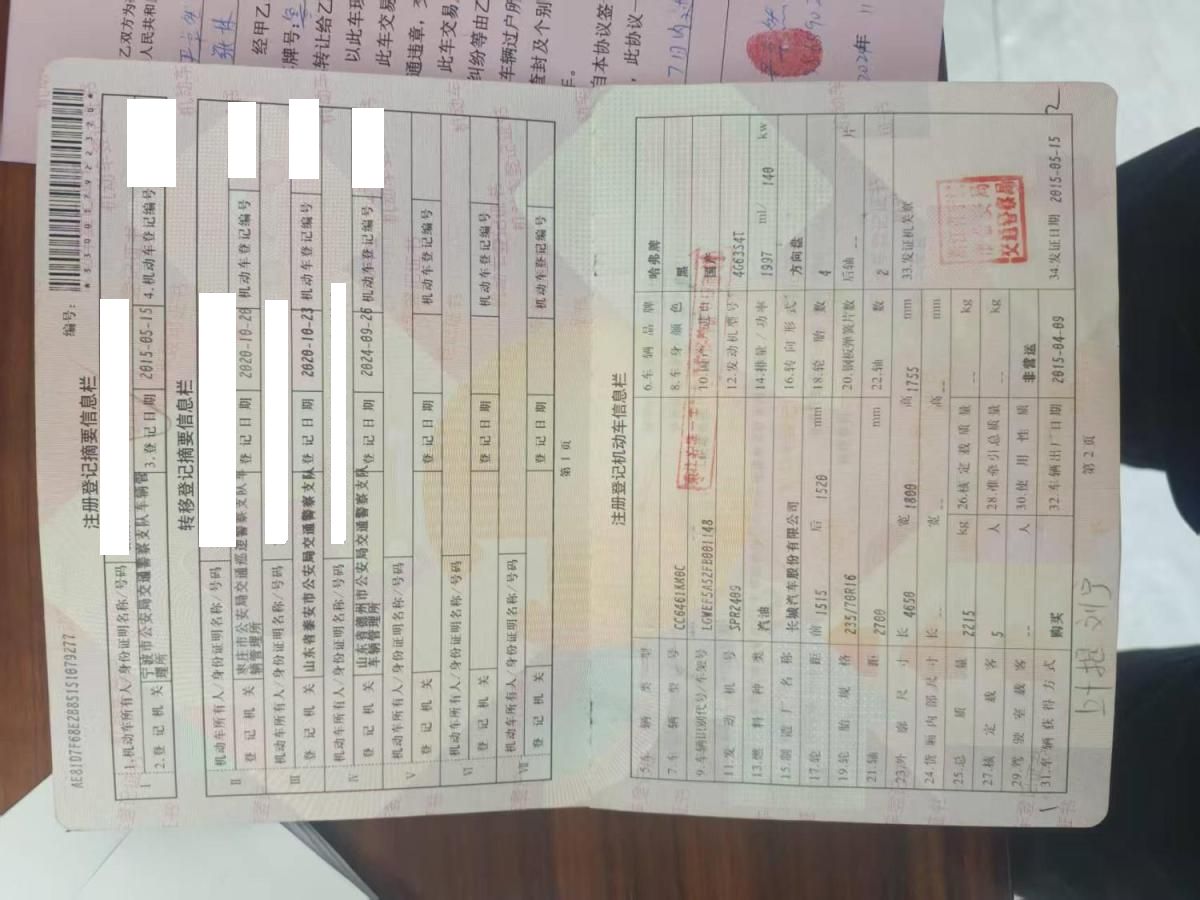 AE81D7F68E288515I079277
编号：
*330017922320*
注册登记摘要信息栏
I 1.机动车所有人/身份证明名称/号码
2.登记机关 宁波市公安局交通警察支队车辆管理所 3.登记日期 2015-05-15 4.机动车登记编号
转移登记摘要信息栏
II 机动车所有人/身份证明名称/号码
登记机关 枣庄市公安局交通巡逻警察支队车辆管理所 登记日期 2020-10-20 机动车登记编号
III 机动车所有人/身份证明名称/号码
登记机关 山东省泰安市公安局交通警察支队 登记日期 2020-10-23 机动车登记编号
IV 机动车所有人/身份证明名称/号码
登记机关 山东省德州市公安局交通警察支队车辆管理所 登记日期 2024-09-26 机动车登记编号
V 机动车所有人/身份证明名称/号码
登记机关 登记日期 机动车登记编号
VI 机动车所有人/身份证明名称/号码
登记机关 登记日期 机动车登记编号
VII 机动车所有人/身份证明名称/号码
登记机关 登记日期 机动车登记编号
第 1 页
注册登记机动车信息栏
5.车辆类型 6.车辆品牌 哈弗牌
7.车辆型号 CC6461KM0C 8.车身颜色 黑
9.车辆识别代号/车架号 LGWEF5A52FB001148 10.国产/进口 国产
11.发动机号 SPR2409 12.发动机型号 4G63S4T
13.燃料种类 汽油 14.排量/功率 1997 ml/ 140 kw
15.制造厂名称 长城汽车股份有限公司 16.转向形式 方向盘
17.轮距 前 1515 后 1520 mm 18.轮胎数 4
19.轮胎规格 235/70R16 20.钢板弹簧片数 后轴 -- 片
21.轴距 2700 mm 22.轴数 2
23.外廓尺寸 长 4650 宽 1800 高 1755 mm 33.发证机关章
24.货厢内部尺寸 长 -- 宽 -- 高 -- mm
25.总质量 2215 kg 26.核定载质量 -- kg
27.核定载客 5 人 28.准牵引总质量 -- kg
29.驾驶室载客 -- 人 30.使用性质 非营运
31.车辆获得方式 购买 32.车辆出厂日期 2015-04-09 34.发证日期 2015-05-15
第 2 页